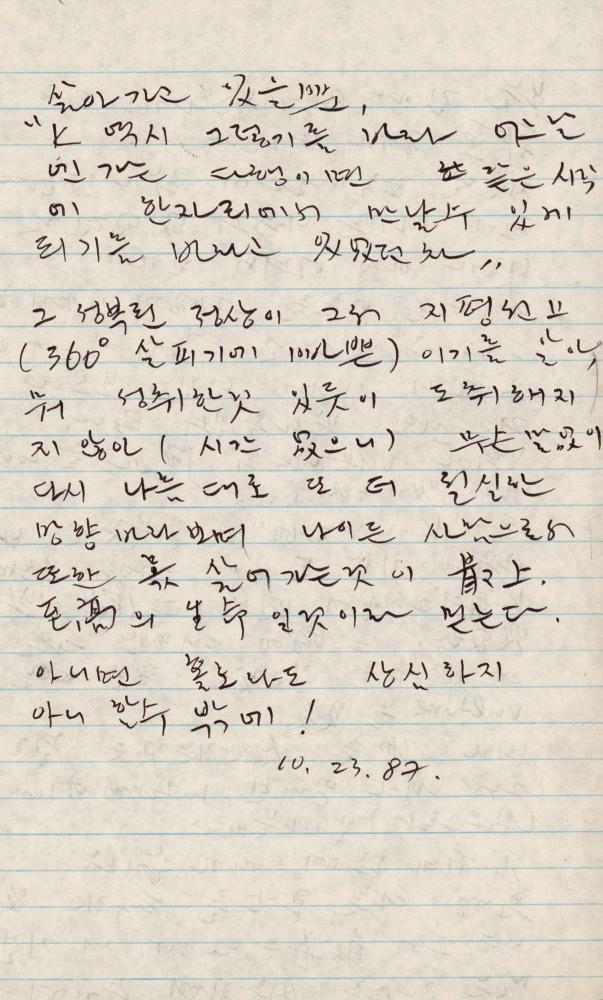 살아가고 있을뿐,
"K 역시 그렇기를 바라 어느날
엔가는 다행이면 또 같은 시각
에 한자리에서 만날수 있게
되기를 바라고 있었던 차„
그 정복된 정상이 그저 지평선고
(360° 살피기에 바쁜) 이기를 알아,
뭐 성취한것 있듯이 도취해지
지 않아 ( 시간 없으니) 무슨 말없이
다시 나름 대로 또 더 월실한
방향 바라보며 나이든 사람으로서
또한 살어가는것이 最上.
至高의 生命 일것이라 믿는다.
아니면 홀로라도 상심하지
아니 할수 밖에!
10. 23. 87.